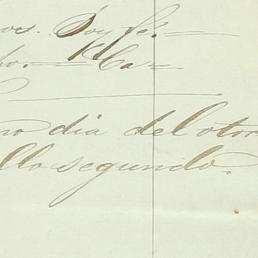 os. Doy fé.
no dia del otor
llo segundo.